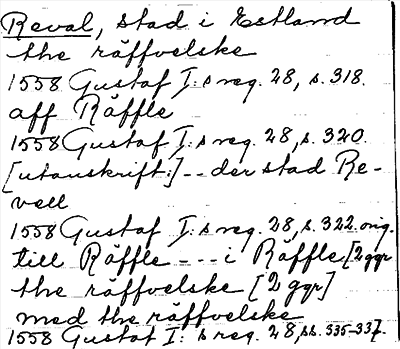 Reval, stad i Estland
the räffvelske
1558 Gustaf I: s reg. 28, s. 318.
aff Räffle
1558 Gustaf I: s reg. 28, s. 320.
[utanskrift:] -- der stad Re-
vell
1558 Gustaf I: s reg. 28, s. 322 orig.
till Räffle --- i Räffle [2 ggr
the räffvelske [2 ggr]
med the räffvelske
1558 Gustaf I: s reg. 28, ss. 335-337.